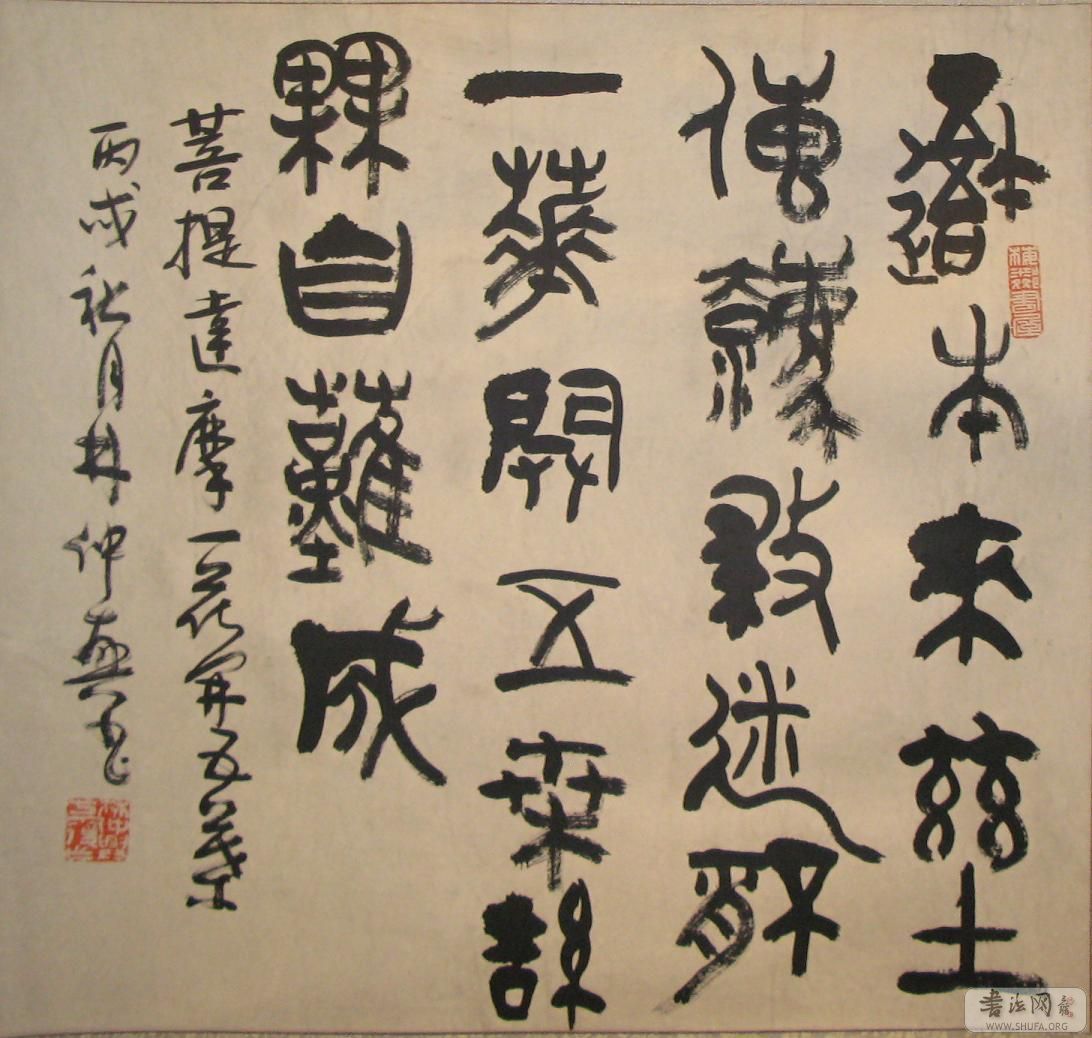 吾本來茲土
傳灋救迷
一華開五枼結
果自然成
菩提達摩一花開五葉
丙戌秋月林仲興書
书法网
WWW.SHUFA.ORG